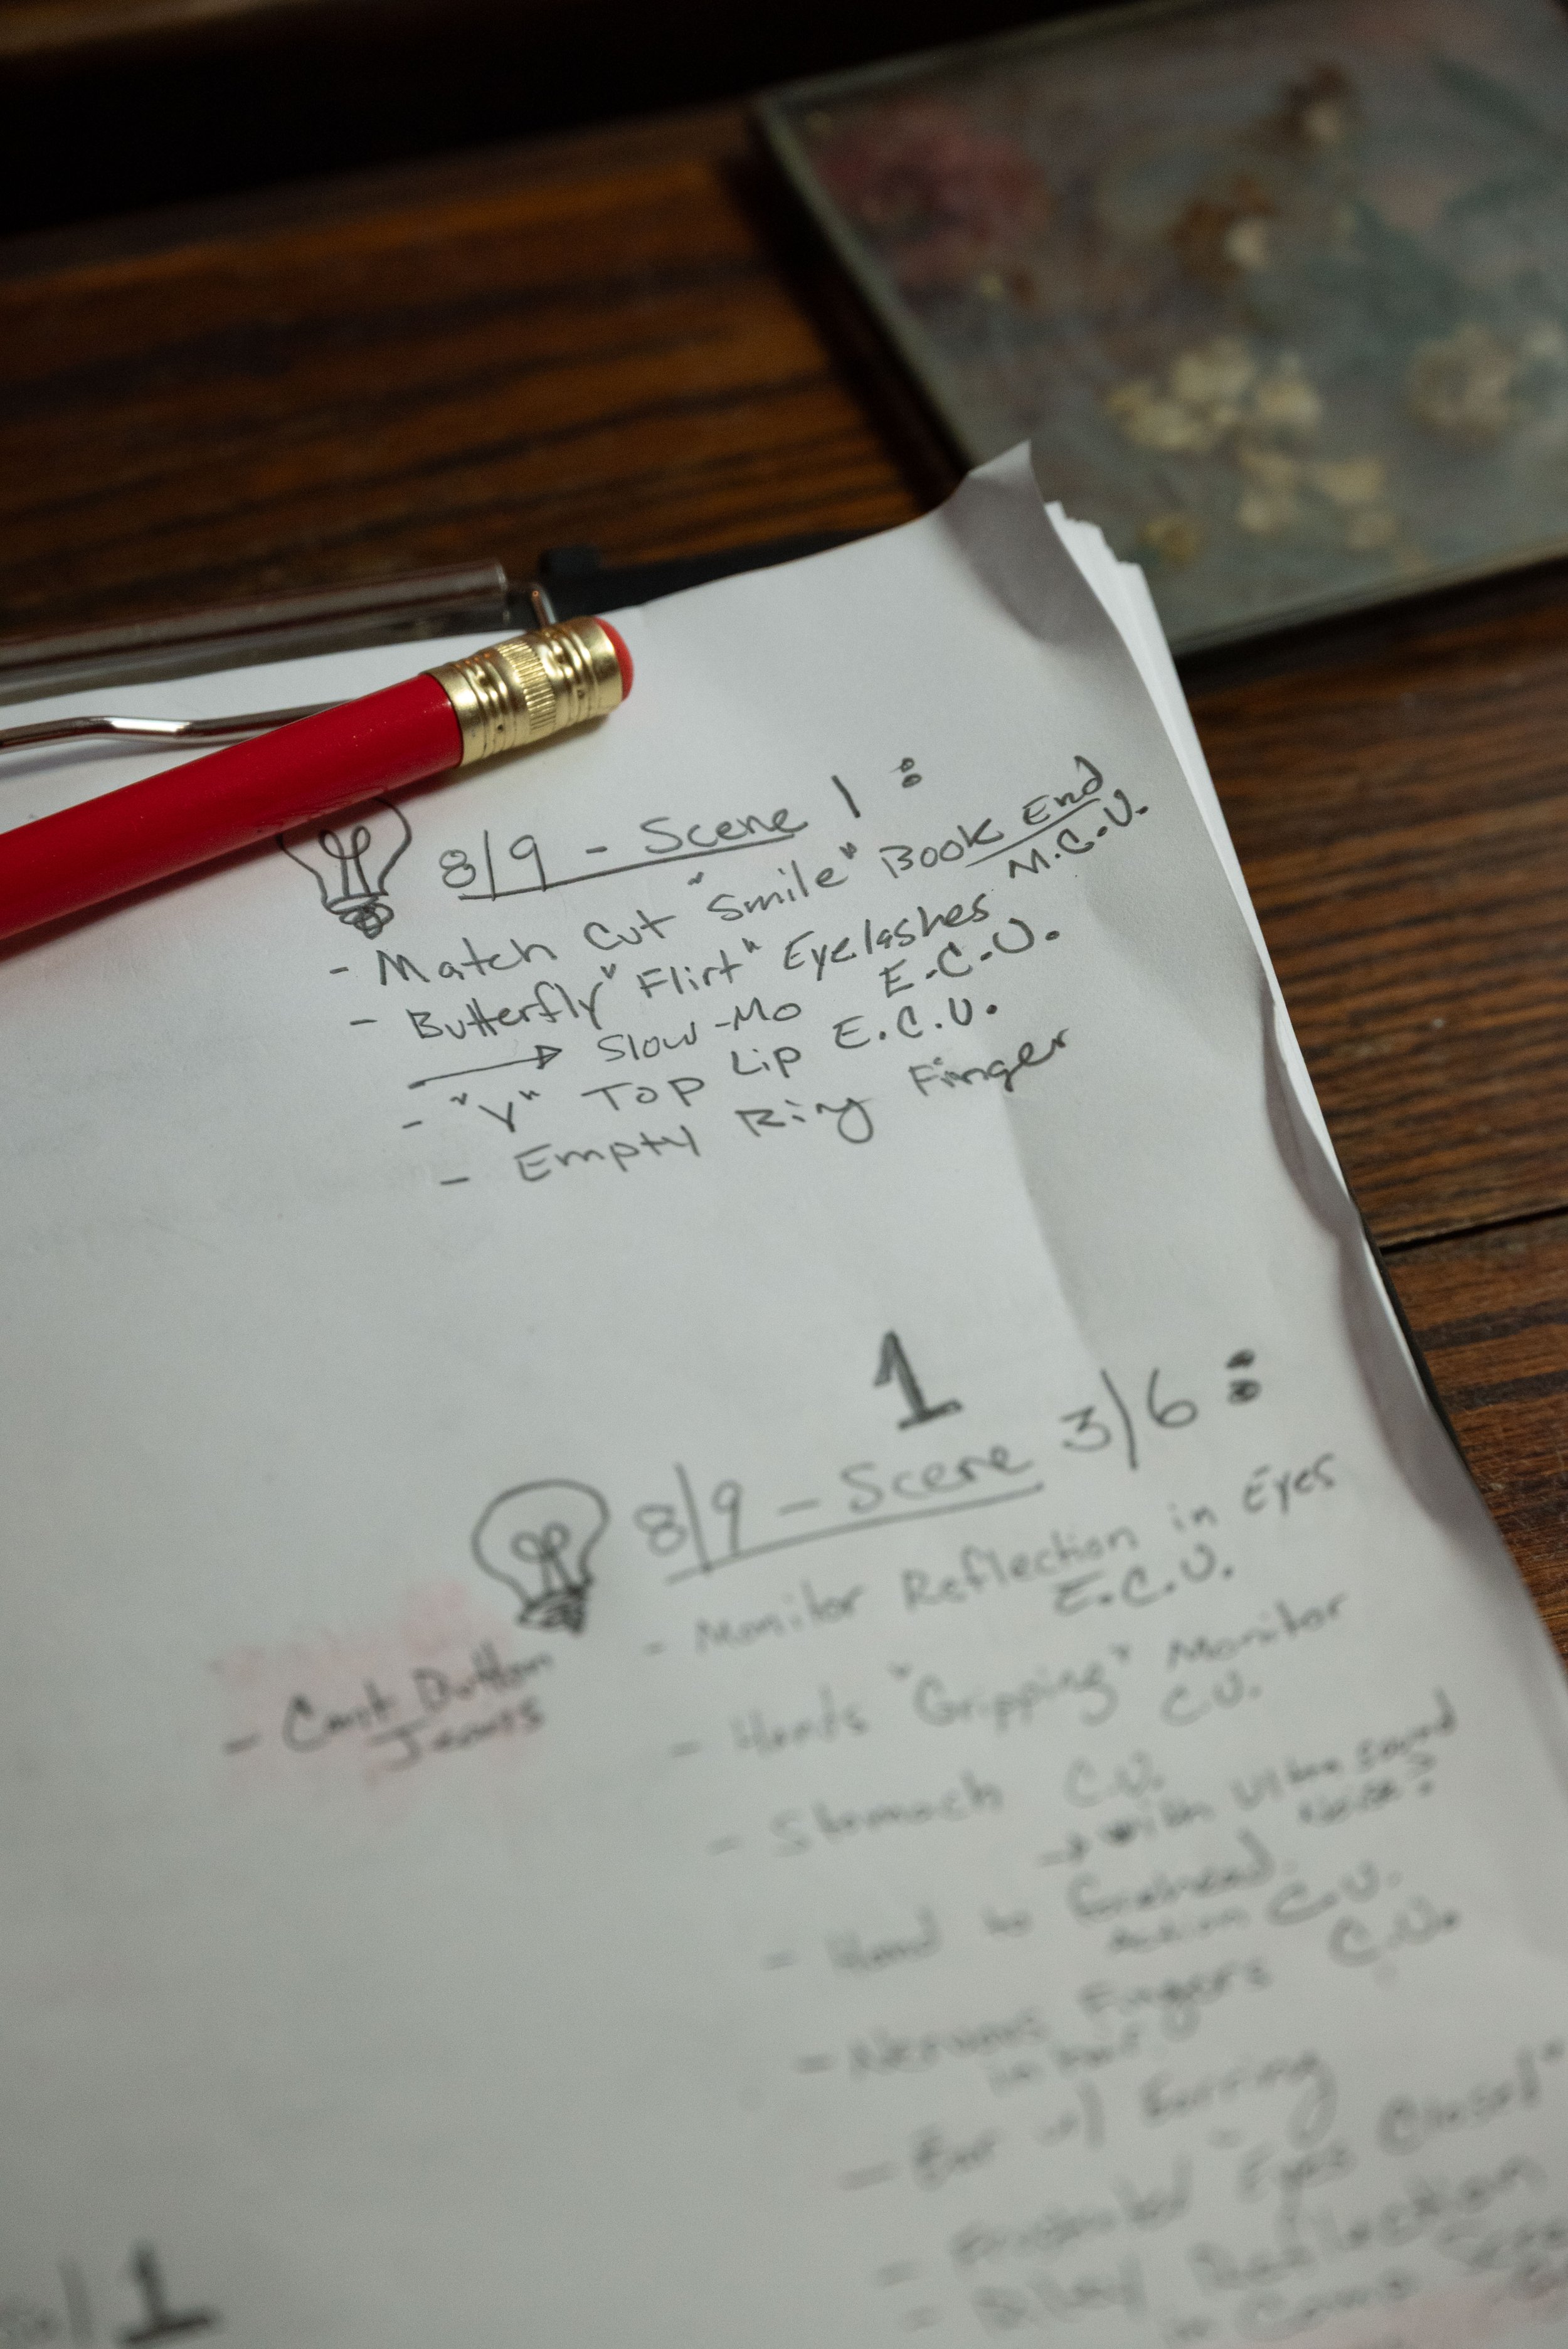 8/9 - Scene 1:
- Match Cut "Smile" Book End
M.C.U.
- Butterfly "Flirt" Eyelashes
→ Slow-Mo E.C.U.
- "Y" Top Lip E.C.U.
- Empty Ring Finger
1
8/9 - Scene 3/6:
- Monitor Reflection in Eyes
E.C.U.
- Hands "Gripping" Monitor
C.U.
- Stomach C.U.
→ with Ultra Sound
Noise?
- Hand to forehead
Action C.U.
- Nervous Fingers C.U.
in hair
- Ear w/ Earring
- "Eyes Closed"
- Reflection
- Can't Button
Jeans
1